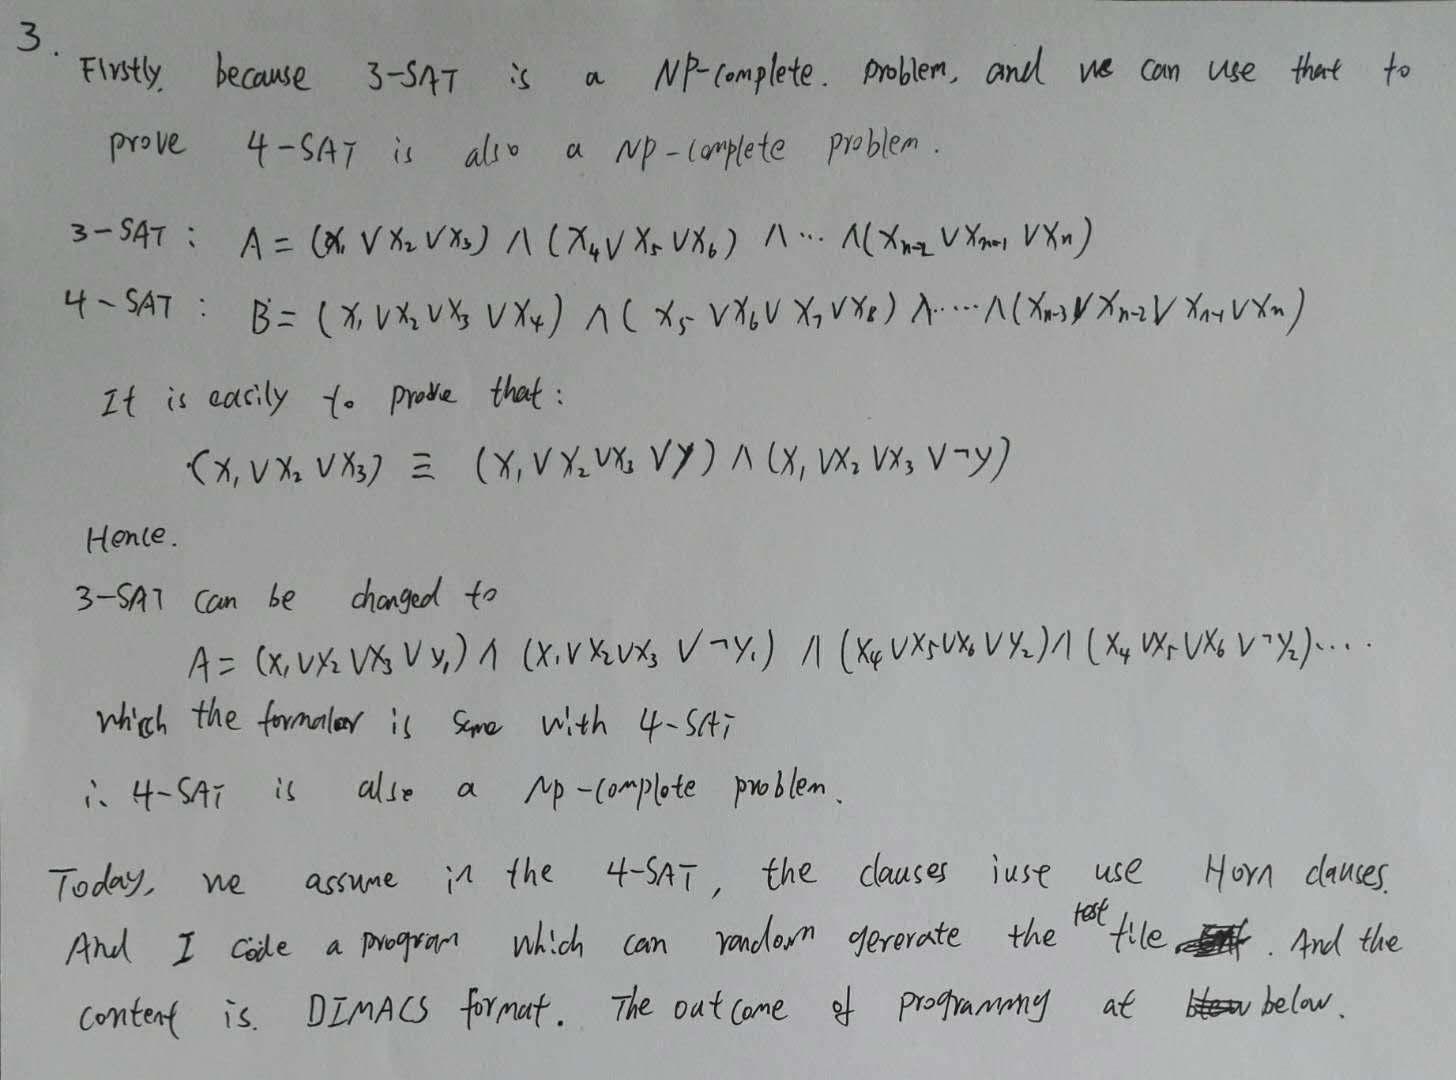 3.
Firstly, because 3-SAT is a NP-complete. problem, and we can use that to
prove 4-SAT is also a NP-complete problem.
3-SAT: A = (X₁ ∨ X₂ ∨ X₃) ∧ (X₄ ∨ X₅ ∨ X₆) ∧ ... ∧ (Xₙ₋₂ ∨ Xₙ₋₁ ∨ Xₙ)
4-SAT: B = (X₁ ∨ X₂ ∨ X₃ ∨ X₄) ∧ (X₅ ∨ X₆ ∨ X₇ ∨ X₈) ∧ ..... ∧ (Xₙ₋₃ ∨ Xₙ₋₂ ∨ Xₙ₋₁ ∨ Xₙ)
It is easily to prove that:
(X₁ ∨ X₂ ∨ X₃) ≡ (X₁ ∨ X₂ ∨ X₃ ∨ y) ∧ (X₁ ∨ X₂ ∨ X₃ ∨ ¬y)
Hence.
3-SAT can be changed to
A = (X₁ ∨ X₂ ∨ X₃ ∨ y₁) ∧ (X₁ ∨ X₂ ∨ X₃ ∨ ¬y₁) ∧ (X₄ ∨ X₅ ∨ X₆ ∨ y₂) ∧ (X₄ ∨ X₅ ∨ X₆ ∨ ¬y₂) ....
which the is same with 4-SAT
∴ 4-SAT is also a Np-complete problem.
Today, we assume in the 4-SAT, the clauses use Horn clauses.
And I code a program which can random generate the test file. And the
content is. DIMACS format. The outcome of programming at below.